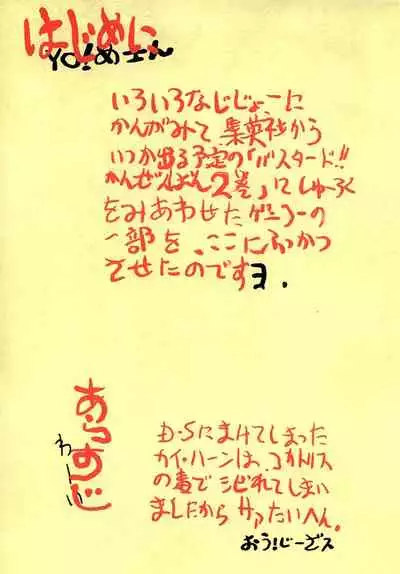 はじめに
YO!めェん
いろいろなじじょーに
かんがみて 集英社から
いつか出る予定の「バスタード!!
かんぜんばん2巻」にしゅーろく
をみあわせたゲンコーの
一部を、ここにふっかつ
させたのですヨ.
あらすじ
わーい
D・Sにまけてしまった
カイ・ハーンは、コカトリス
の毒でシビれてしまい
ましたから サァたいへん。
おう!じーざス